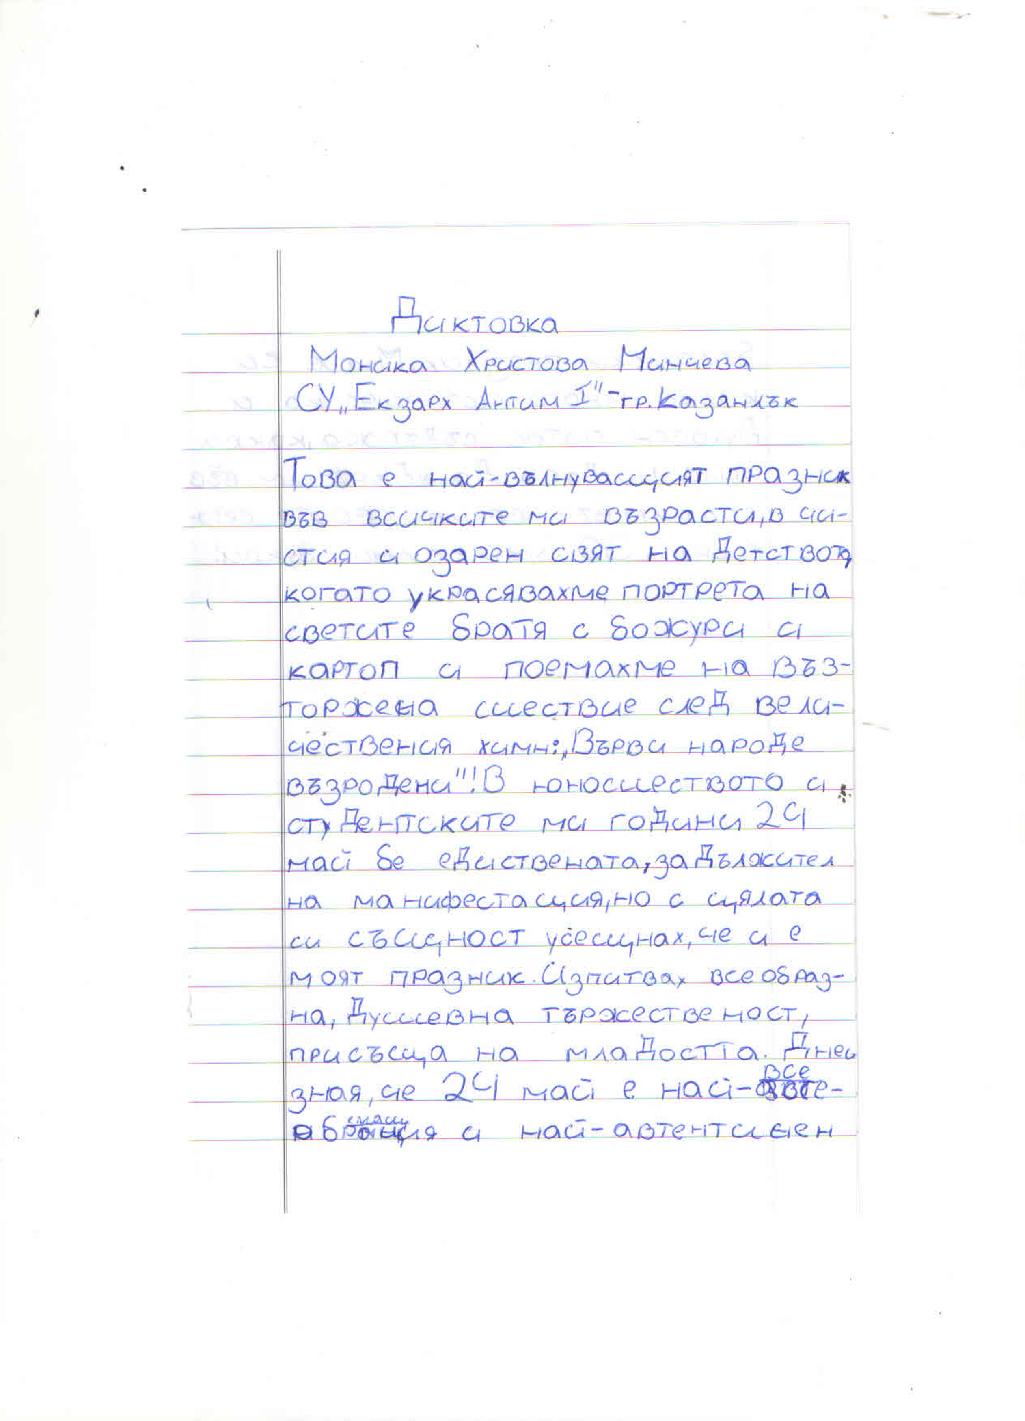 Диктовка
Моника Христова Минчева
СУ „Екзарх Антим I" - гр. Казанлък
Това е най-вълнуващият празник
във всичките ми възрасти, в чи-
стия и озарен свят на детството,
когато украсявахме портрета на
светите братя с божури и
картоп и поемахме на въз-
торжена шествие след вели-
чествения химн: „Върви народе
възродени"! В юношеството и
студентските ми години 24
май бе едиствената, задължител
на манифестация, но с цялата
си същност усещнах, че и е
моят празник. Изпитвах все образ-
на, душевна тържественост,
присъща на младостта. Днес
зная, че 24 май е най-все-
обемащия и най-автентичен